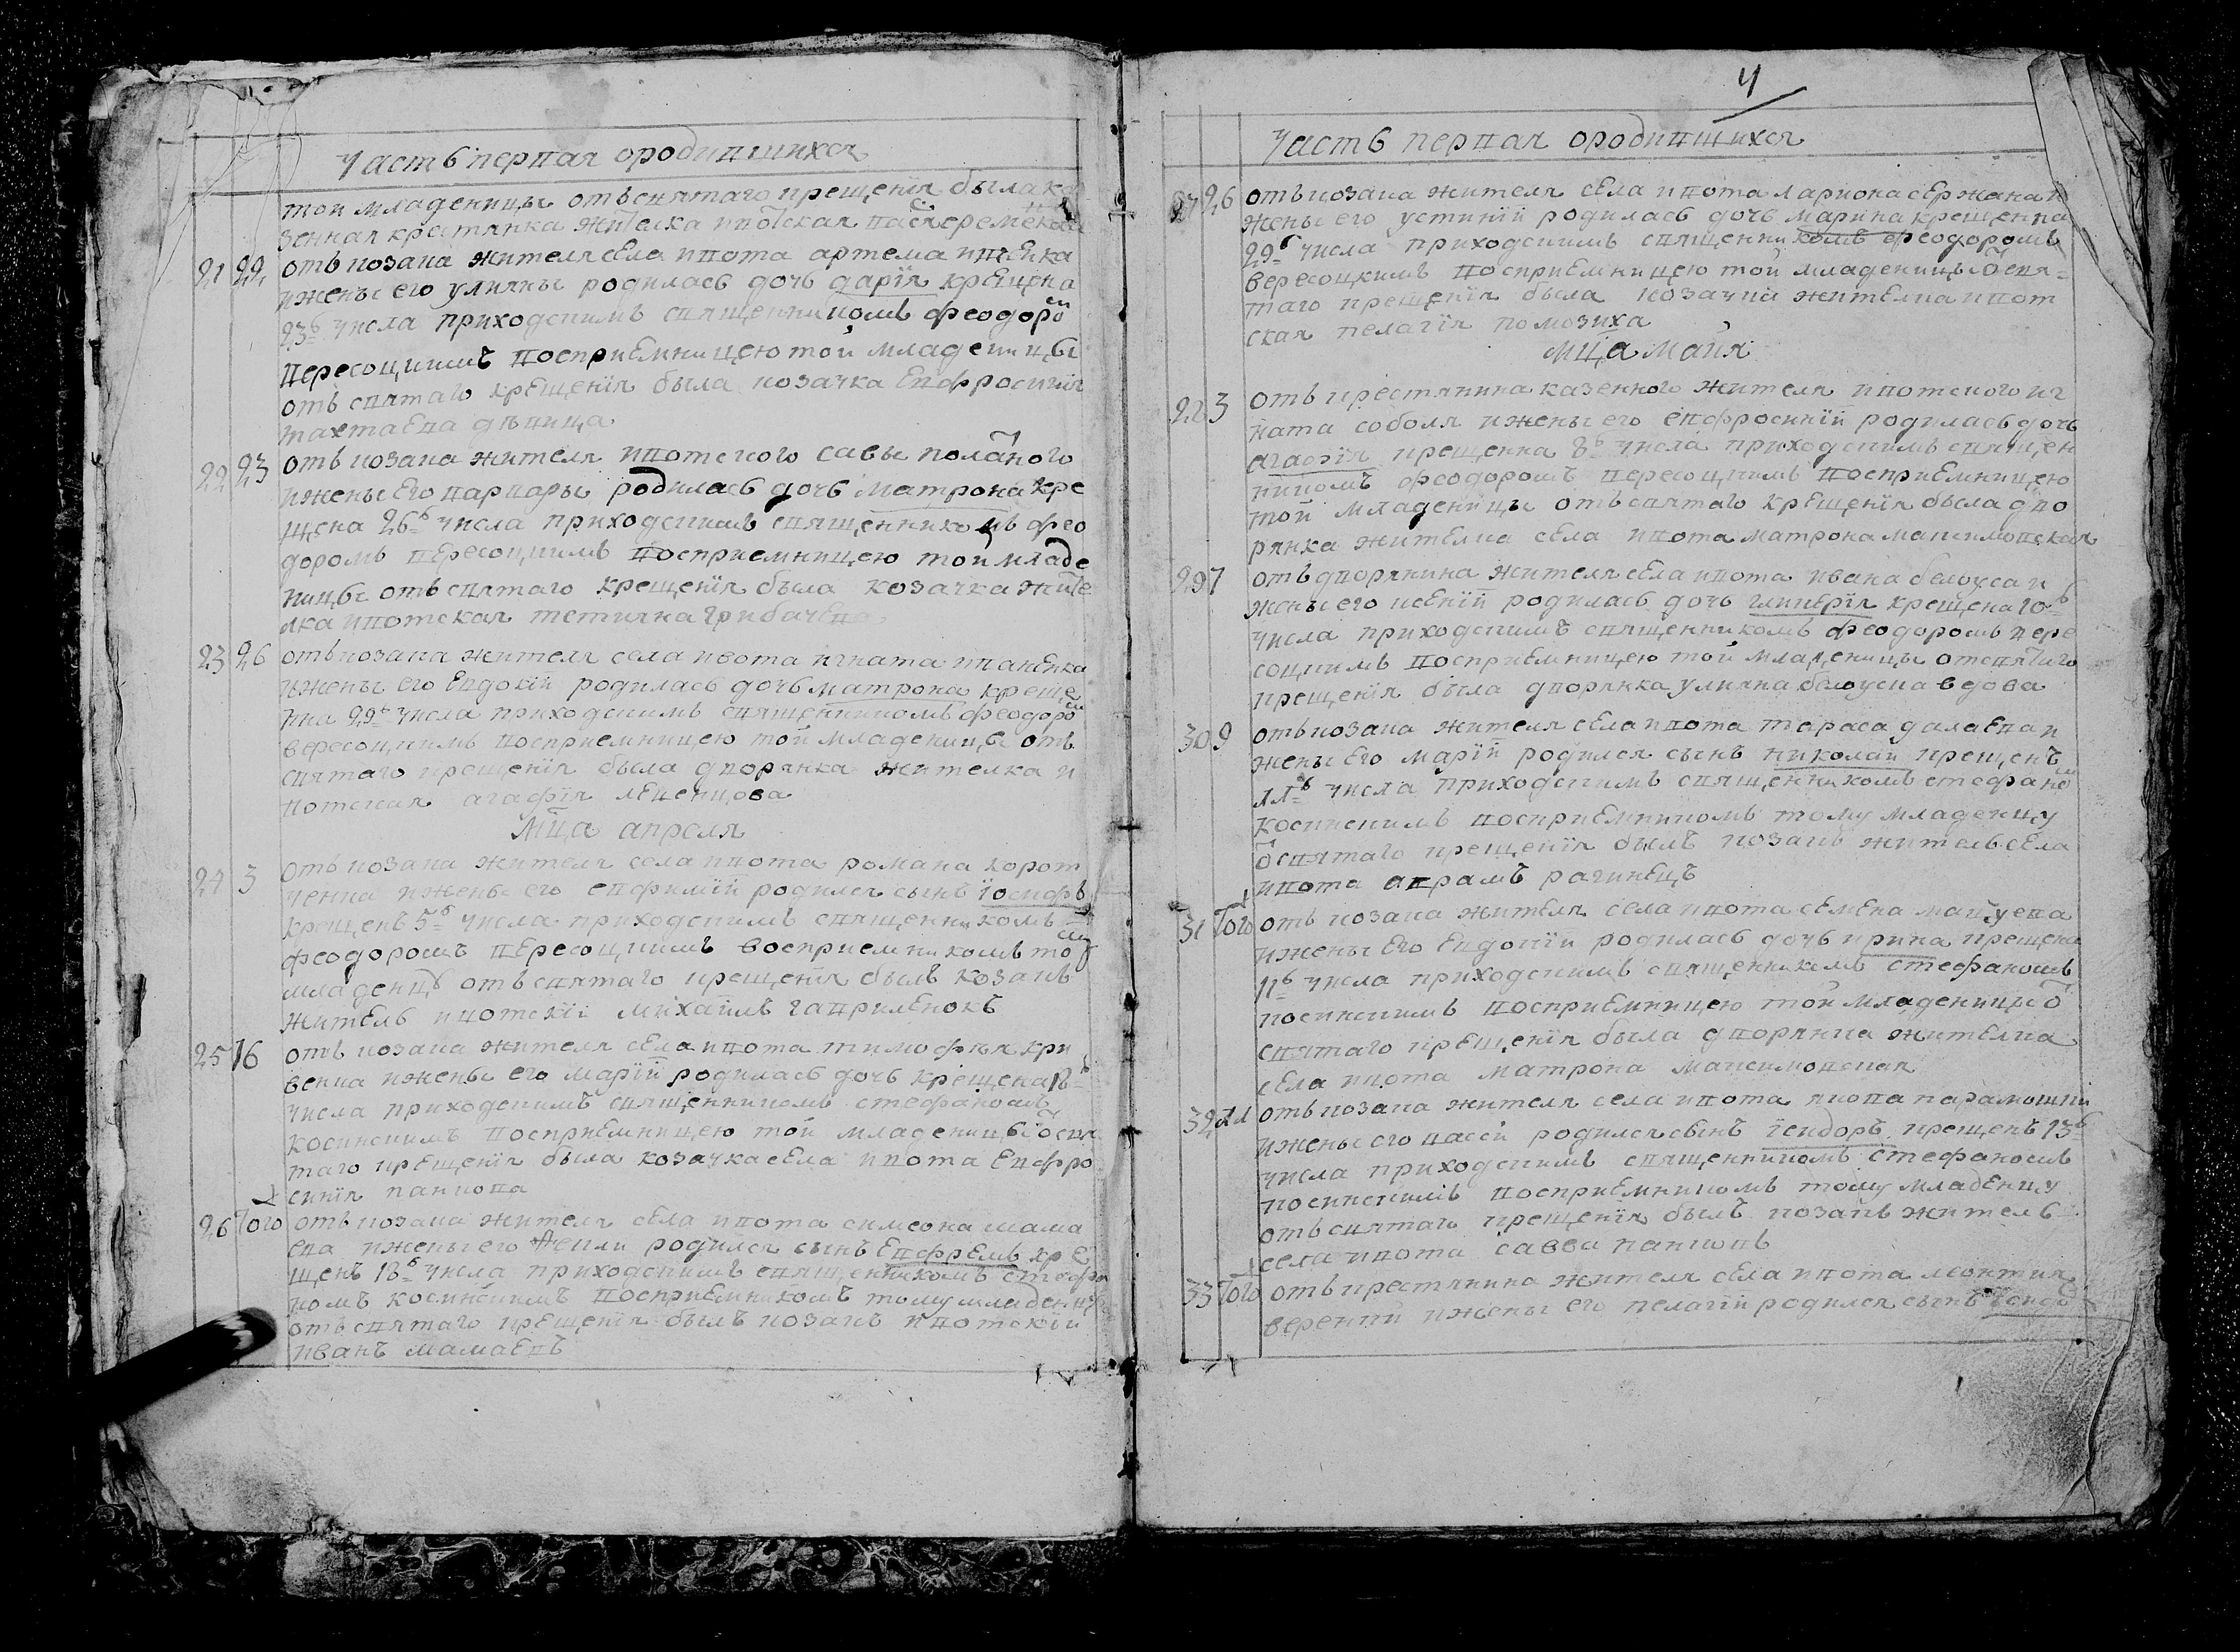 Часть первая ородившихся
той младеницы отъ святаго крещенїя была ка
зенная крестянка жителка ивотская
21 22 отъ козака жителя села ивота артема ивченка
ижены его улияны родилась дочь дарїя крещена
23ь числа приходскимъ священникомъ феодоромъ
вересоцкимъ восприемницею той младеницы
отъ святаго крещенїя была козачка евфросинїя
тахтаева дѣвица
22 23 отъ козака жителя ивотского савы поланого
ижены его варвары родилась дочь матрона кре
щена 26ь числа приходскимъ священникомъ фео
доромъ вересоцкимъ восприемницею той младе
ницы отъ святаго крещенїя была козачка жите
лка ивотская тетияна грибачева
23 26 отъ козака жителя села ивота игната иваненка
ижены его евдокїй родилась дочь матрона креще
нна 29ь числа приходскимъ священникомъ феодоромъ
вересоцкимъ восприемницею той младеницы отъ
святаго крещенїя была дворянка жителка и
вотская агафїя леценцова
Мца апреля
24 3 отъ козака жителя села ивота романа корот
ченка ижены его евфимїй родился сынъ їосифъ
крещенъ 5ь числа приходскимъ священникомъ
феодоромъ вересоцкимъ восприемникомъ тому
младенцу отъ святаго крещенїя былъ козакъ
житель ивотскїй михаилъ гавриленокъ
25 16 отъ козака жителя села ивота тимофѣя кри
венка ижены его марїй родилась дочь крещена 18ь
числа приходскимъ священникомъ стефаномъ
косинскимъ восприемницею той младеницы о свя
таго крещенїя была козачка села ивота евфро
синїя панкова
26 Того отъ козака жителя села ивота симеона мама
ева ижены его родился сынъ ефремъ кре
щенъ 18ь числа приходскимъ священникомъ стефа
номъ косинскимъ восприемникомъ тому младенцу
отъ святаго крещенїя былъ козакъ ивотскїй
иванъ мамаевъ
4
Часть первая ородившихся
27 26 отъ козака жителя села ивота лариона сержана и
жены его устинїй родилась дочь марина крещенна
29ь числа приходскимъ священникомъ феодоромъ
вересоцкимъ восприемницею той младеницы о свя
таго крещенїя была козачка жителка ивот
ская пелагїя помозиха
мца майя
28 3 отъ крестянина казенного жителя ивотского иг
ната соболя ижены его евфросинїй родилась дочь
агафїя крещенна 8ь числа приходскимъ священ
никомъ феодоромъ вересоцкимъ восприемницею
той младеницы отъ святаго крещенїя была дво
рянка жителка села ивота матрона максимовская
29 7 отъ дворянина жителя села ивота ивана белоуса и
жены его ксенїй родилась дочь гликерїя крещена 10ь
числа приходскимъ священникомъ феодоромъ вере
соцкимъ восприемницею той младеницы от святаго
крещенїя была дворянка улияна белоуска вдова
30 9 отъ козака жителя села ивота тараса далаева и
жены его марїй родился сынъ николай крещенъ
11ь числа приходскимъ священникомъ стефаномъ
косинскимъ восприемникомъ тому младенцу
о святаго крещенїя былъ козакъ житель села
ивота аврамъ рагинецъ
31 Того отъ козака жителя села ивота семена мацуева
ижены его евдокїй родилась дочь ирина крещена
11ь числа приходскимъ священникомъ стефаномъ
косинскимъ восприемницею той младеницы о
святаго крещенїя была дворянка жителка
села ивота матрона максимовская
32 11 отъ козака жителя села ивота якова парамошки
ижены его васси родился сынъ їсидоръ крещенъ 13ь
числа приходскимъ священникомъ стефаномъ
косинскимъ восприемникомъ тому младенцу
отъ святаго крещенїя былъ козакъ житель
села ивота савва панковъ
33 Того отъ крестянина жителя села ивота леонтия
верекки ижены его пелагїй родился сынъ їсидо